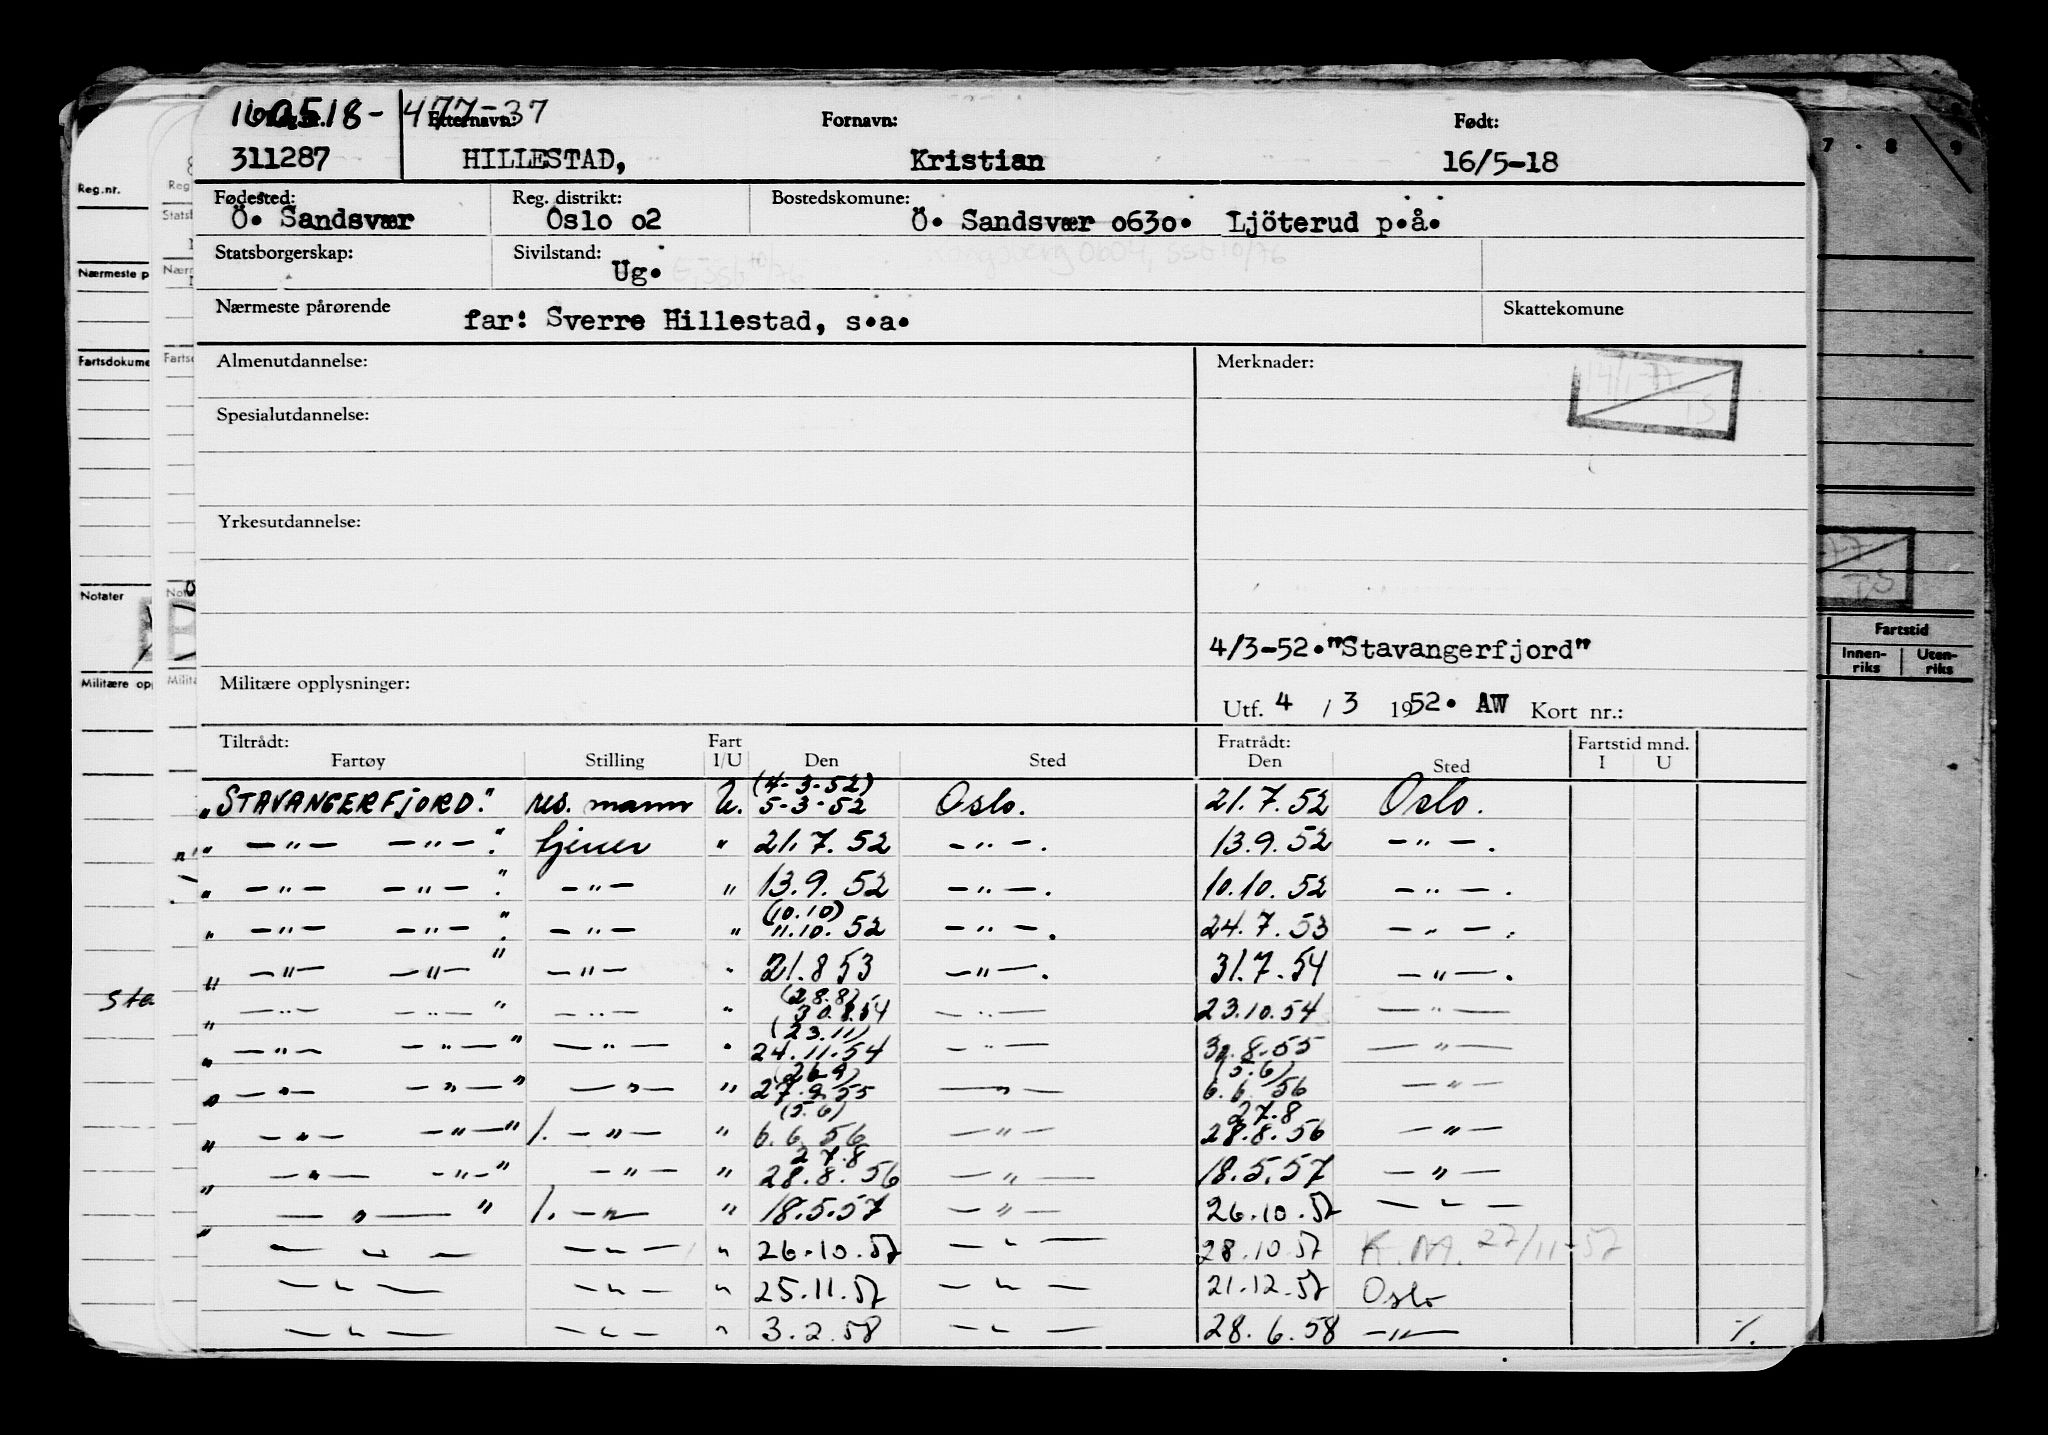 160518-47737
Etternavn: Fornavn: Født:
311287 HILLESTAD, Kristian 16/5-18
Fødested: Reg. distrikt: Bostedskomune:
Ö. Sandsvær Oslo o2 Ö. Sandsvær o63o. Ljöterud p.å.
Statsborgerskap: Sivilstand:
Ug. Kongsberg 0604, SSB 10/76
Nærmeste pårørende Skattekomune
far: Sverre Hillestad, s.a.
Almenutdannelse: Merknader:
Spesialutdannelse:
Yrkesutdannelse:
4/3-52."Stavangerfjord"
Militære opplysninger:
Utf. 4 / 3 1952. AW Kort nr.:
Tiltrådt: Fart Fratrådt: Fartstid mnd.
Fartøy Stilling I/U Den Sted Den Sted I U
(4-3-52)
"STAVANGERFJORD." res. mann U. 5-3-52 Oslo. 21.7.52 Oslo.
" —"— —"— ." tjener " 21.7.52 —"—. 13.9.52 —"—.
" —"— —"— ." —"— " 13.9.52 —"—. 10.10.52 —"—.
(10.10)
" —"— —"— ." —"— " 11.10.52 —"—. 24.7.53 —"—.
" —"— —"— " —"— " 21.8 53 —"—. 31.7.54 —"—.
(28.8)
" —"— —"— " —"— " 30.8.54 —"— 23.10.54 —"—
(23.11)
" —"— —"— " —"— " 24.11.54 —"— 8.55 —"—
(26.9) (5.6)
" —"— —"— " —"— " 27.9.55 —"— 6.6.56 —"—
(5.6) 27.8
" —"— —"— " 1. —"— " 6.6.56 —"— 28.8.56 —"—
27.8
" —"— —"— " —"— " 28.8.56 —"— 18.5.57 —"—
" —"— " 1. —"— " 18.5.57 —"— 26.10.57 —"—
" —"— —"— " 26.10.57 —"— 28.10.57 K.M. 27/11-57
—"— —"— " 25.11.57 —"— 21.12.57 Oslo
—"— —"— " 3.2.58 —"— 28.6.58 —"— %.
Reg.nr.
Nærmeste p
Fartsdokume
Notater
Militære op
sta
7 . 8 9
Fartstid
Innen-riks Uten-riks